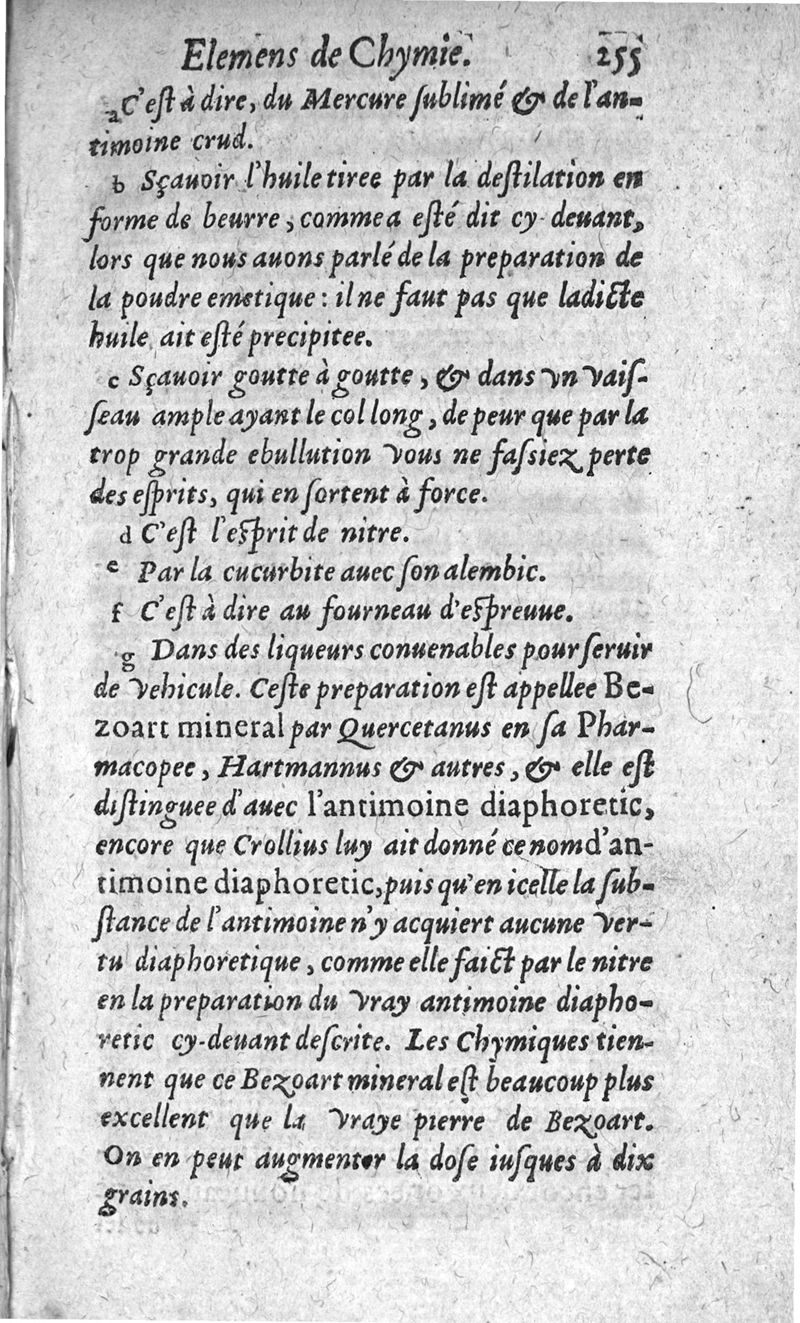 Elemens de Chymie. 255
a C'eſt à dire, du Mercure ſublimé & de l'an-
timoine crud.
b Sçauoir l'huile tiree par la deſtilation en
forme de beurre, comme a eſté dit cy-deuant,
lors que nous auons parlé de la preparation de
la poudre emetique : il ne faut pas que ladicte
huile ait eſté precipitee.
c Sçauoir goutte à goutte, & dans vn vaiſ-
ſeau ample ayant le col long, de peur que par la
trop grande ebullution vous ne faſsiez perte
des eſprits, qui en ſortent à force.
d C'eſt l'eſprit de nitre.
e Par la cucurbite auec ſon alembic.
f C'eſt à dire au fourneau d'eſpreuue.
g Dans des liqueurs conuenables pour ſeruir
de vehicule. Ceſte preparation eſt appellee Be-
zoart mineral par Quercetanus en ſa Phar-
macopee, Hartmannus & autres, & elle eſt
diſtinguee d'auec l'antimoine diaphoretic,
encore que Crollius luy ait donné ce nom d'an-
timoine diaphoretic, puis qu'en icelle la ſub-
ſtance de l'antimoine n'y acquiert aucune ver-
tu diaphoretique, comme elle faict par le nitre
en la preparation du vray antimoine diapho-
retic cy-deuant deſcrite. Les Chymiques tien-
nent que ce Bezoart mineral eſt beaucoup plus
excellent que la vraye pierre de Bezoart.
On en peut augmenter la doſe iuſques à dix
grains.